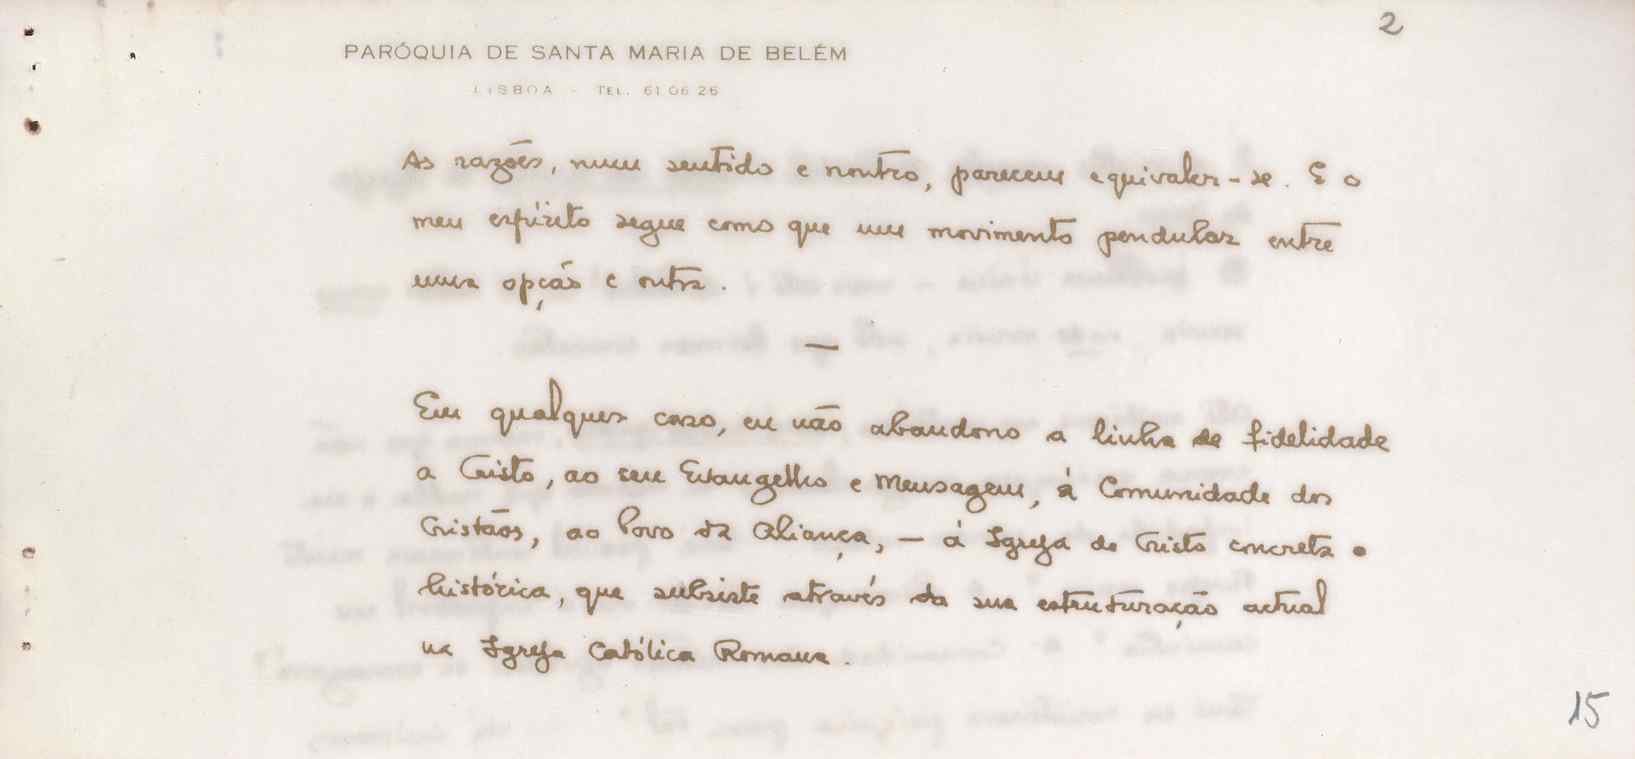 2
PARÓQUIA DE SANTA MARIA DE BELÉM
LISBOA - TEL. 61 06 26
As razões, num sentido e noutro, parecem equivaler-se. E o
meu espírito segue como que um movimento pendular entre
uma opção e outra.
—
Em qualquer caso, eu não abandono a linha de fidelidade
a Cristo, ao seu Evangelho e Mensagem, à Comunidade dos
Cristãos, ao Povo da Aliança, — à Igreja de Cristo concreta e
histórica, que subsiste através da sua estruturação actual
na Igreja Católica Romana.
15